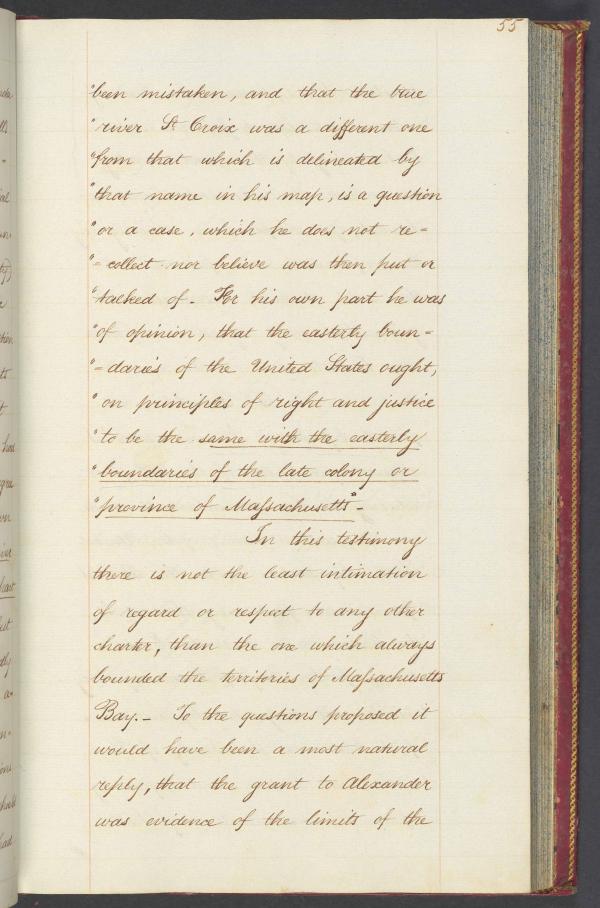 55
"been mistaken, and that the true
"river St Croix was a different one
"from that which is delineated by
"that name in his map, is a question
"or a case, which he does not re=
"=collect nor believe was then put or
"talked of. For his own part he was
"of opinion, that the easterly boun=
"=daries of the United States ought,
"on principles of right and justice
"to be the same with the easterly
"boundaries of the late colony or
"province of Massachusetts"-
In this testimony
there is not the least intimation
of regard or respect to any other
charter, than the one which always
bounded the territories of Massachusetts
Bay.- To the questions proposed it
would have been a most natural
reply, that the grant to Alexander
was evidence of the limits of the